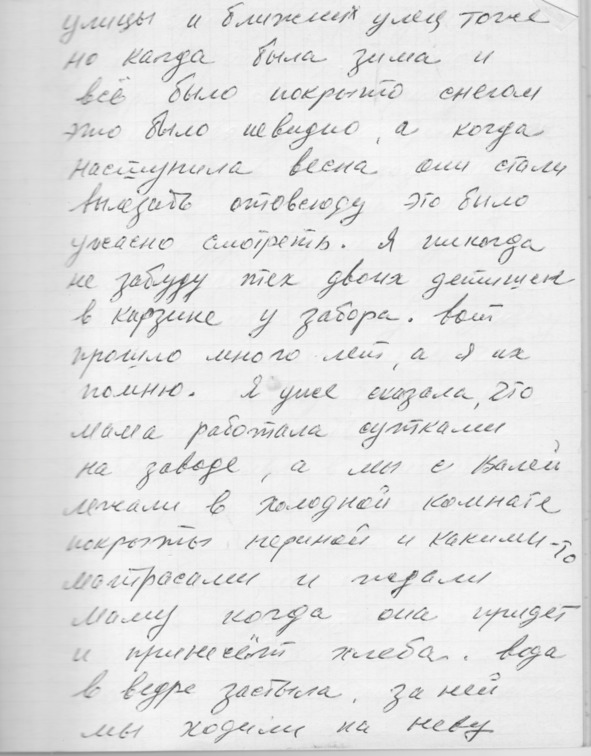 улицы и ближних улец тоже
но кагда была зима и
всё было покрыто снегом
это было невидно, а когда
наступила весна они стали
вылезать отовсюду это было
ужасно смотреть. Я никогда
не забуду тех двоих детишек
в карзине у забора. Вот
прошло много лет, а я их
помню. Я уже сказала, что
мама работала сутками
на заводе, а мы с Валей
лежали в холодной комнате
покрыты периной и какими-то
матрасами и ждали
маму когда она придет
и принесёт хлеба. Вода
в ведре застыла, за ней
мы ходили на неву